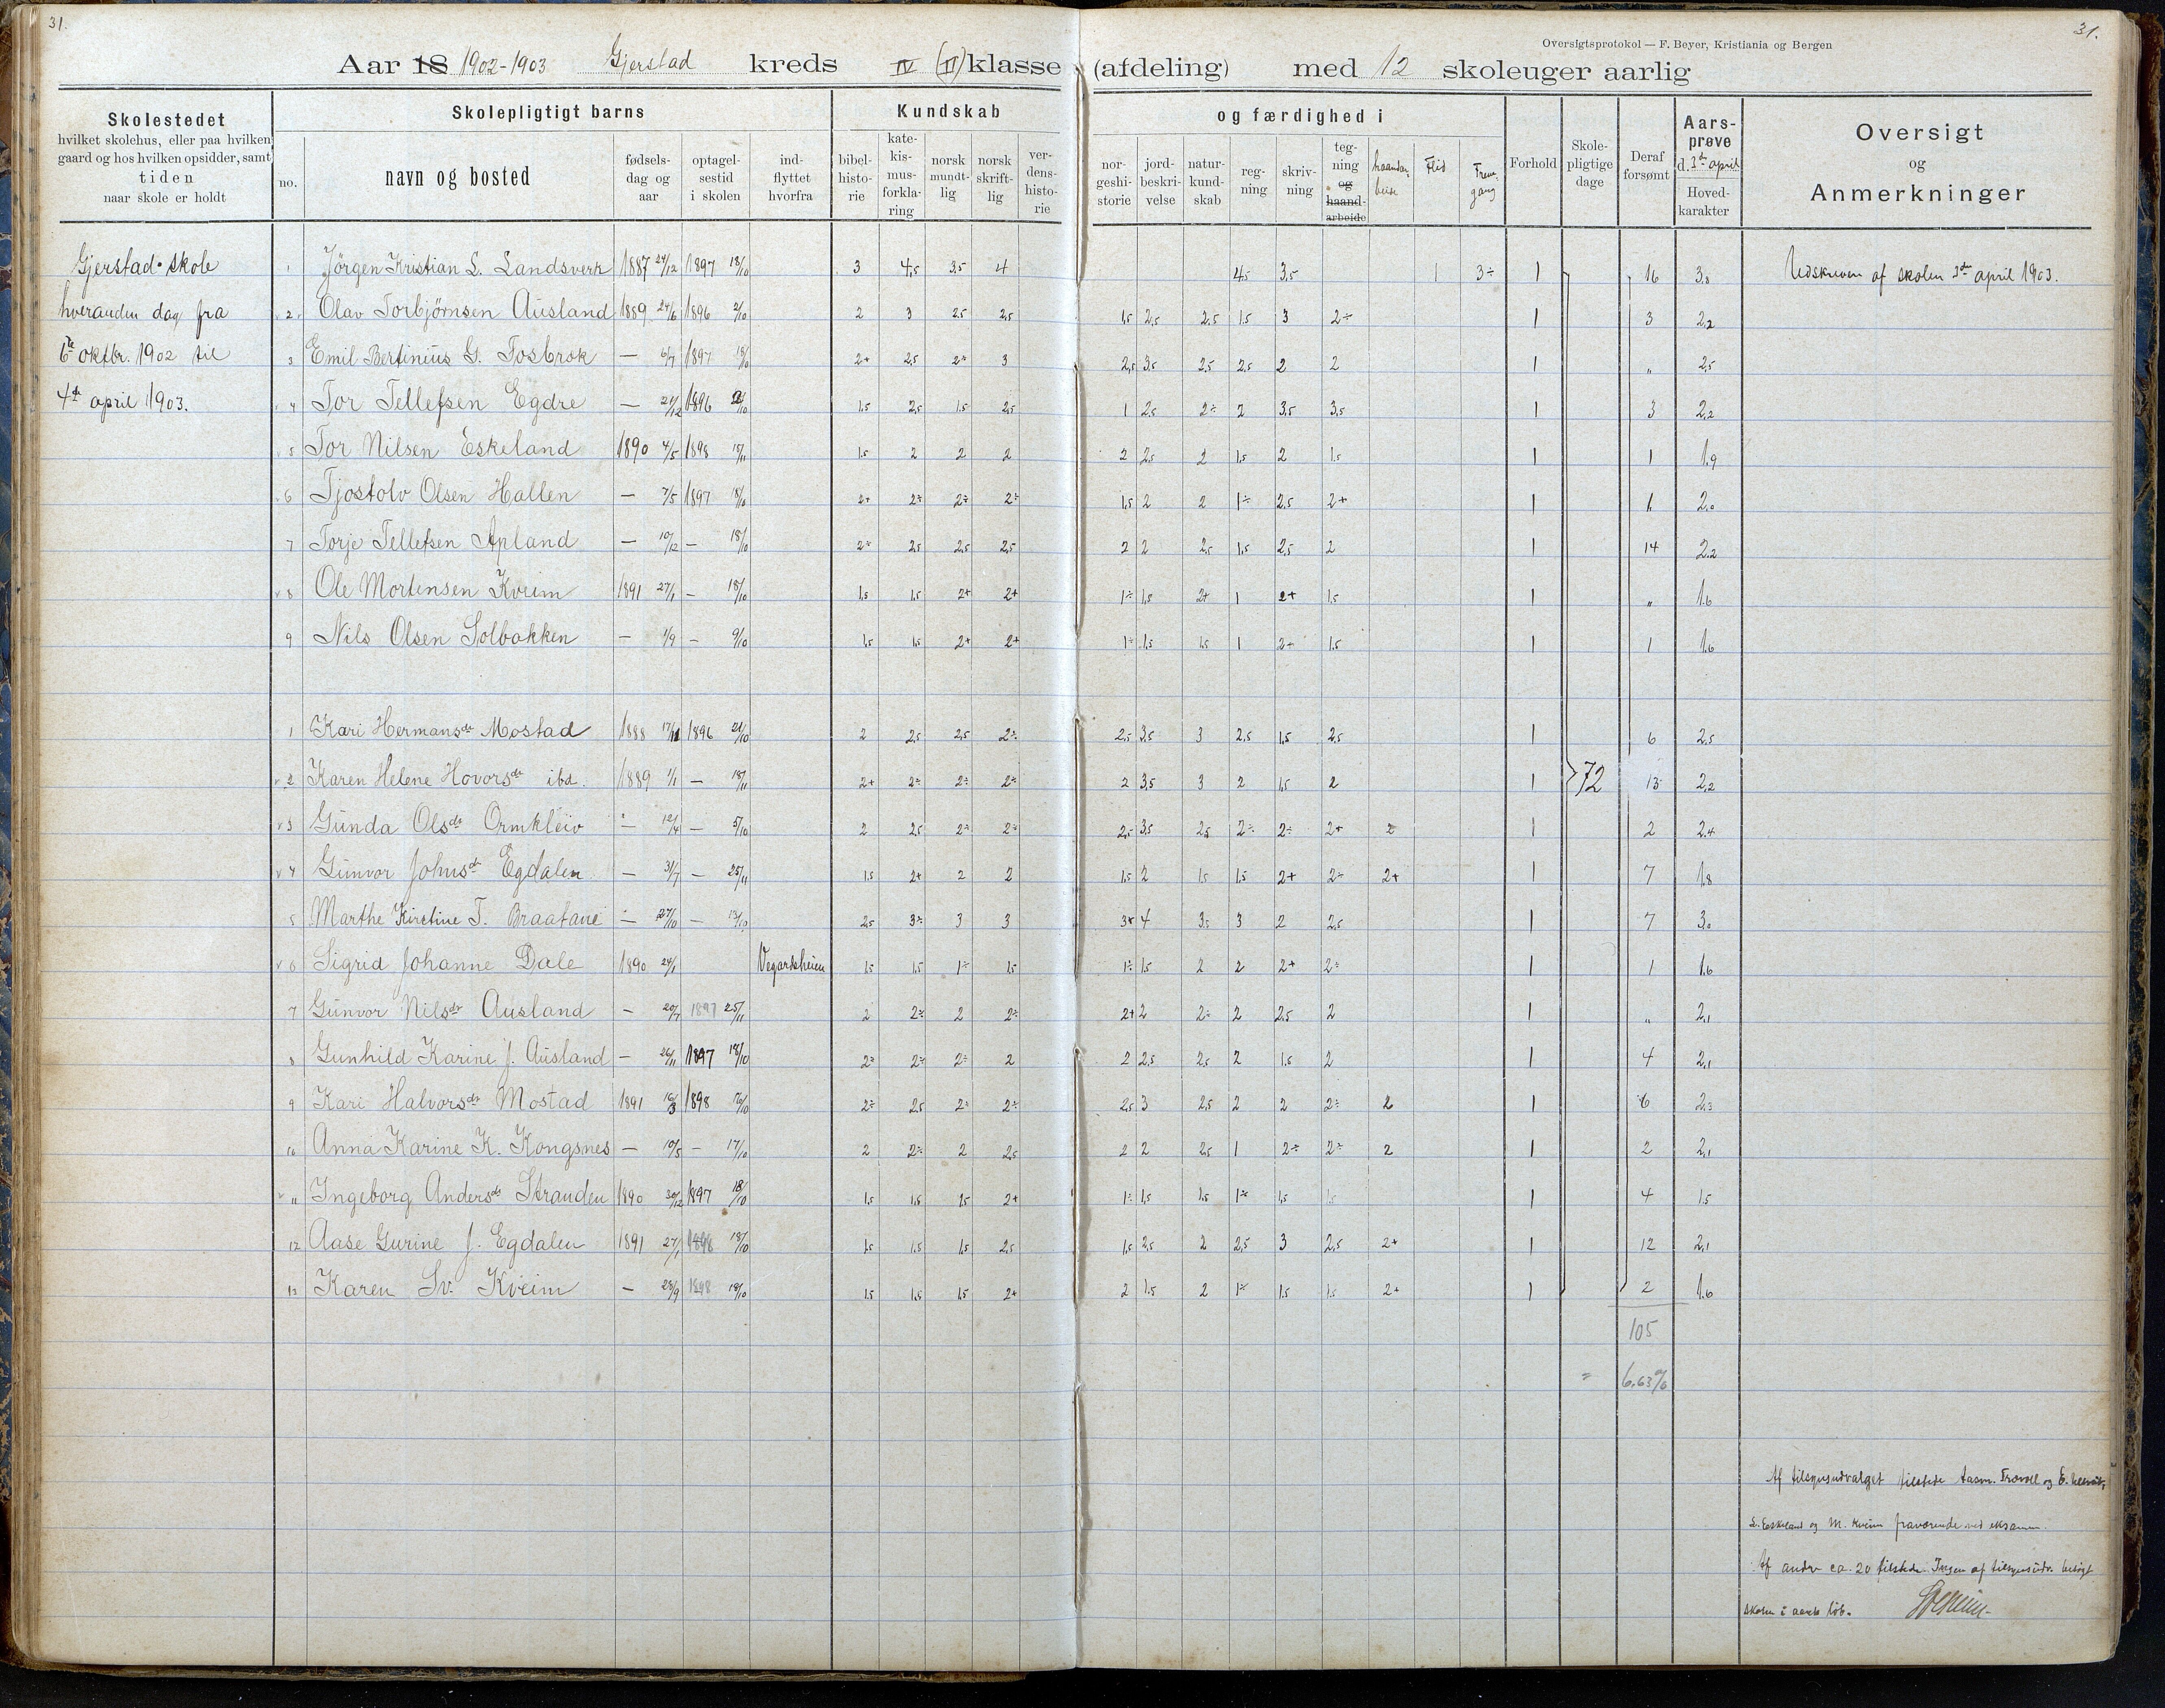 31.
31.
Oversigtsprotokol — F. Beyer, Kristiania og Bergen
Aar 18 1902-1903 Gjerstad kreds IV (II) klasse (afdeling) med 12 skoleuger aarlig
Skolestedet
hvilket skolehus, eller paa hvilken
gaard og hos hvilken opsidder, samt
tiden
naar skole er holdt
Skolepligtigt barns
no.
navn og bosted
fødsels-
dag og
aar
optagel-
sestid
i skolen
ind-
flyttet
hvorfra
Kundskab
bibel-
histo-
rie
kate-
kis-
mus-
forkla-
ring
norsk
mundt-
lig
norsk
skrift-
lig
ver-
dens-
histo-
rie
og færdighed i
nor-
geshi-
storie
jord-
beskri-
velse
natur-
kund-
skab
reg-
ning
skriv-
ning
teg-
ning
og
haand-
arbeide
Flid
Frem-
gang
Forhold
Skole-
pligtige
dage
Deraf
forsømt
Aars-
prøve
d. 3de april
Hoved-
karakter
Oversigt
og
Anmerkninger
Gjerstad skole
hveranden dag fra
6te oktbr. 1902 til
4de april 1903.
1 Jörgen Kristian L. Landsverk 1887 24/12 1897 18/10 3 4,5 3,5 4 4,5 3,5 1 3÷ 1 16 3,8 Udskreven af skolen 3de april 1903.
2 Olav Torbjørnsen Ausland 1889 24/6 1896 2/10 2 3 2,5 2,5 1,5 2,5 2,5 1,5 3 2÷ 1 3 2,2
3 Emil Bertinius G. Tosbrok — 6/7 1897 18/10 2+ 2,5 2÷ 3 2,5 3,5 2,5 2,5 2 2 1 „ 2,5
4 Tor Tellefsen Egdre — 21/12 1896 1,5 2,5 1,5 2,5 1 2,5 2÷ 2 3,5 3,5 1 3 2,2
5 Tor Nilsen Eskeland 1890 4/5 1898 15/11 1,5 2 2 2 2 2,5 2 1,5 2 1,5 1 1 1,9
6 Tjostolv Olsen Hallen — 7/5 1897 18/10 2+ 2÷ 2÷ 2÷ 1,5 2 2 1÷ 2,5 2+ 1 1 2,0
7 Torje Tellefsen Apland — 10/12 — 18/10 2÷ 2,5 2,5 2,5 2 2 2,5 1,5 2,5 2 1 14 2,2
8 Ole Mortensen Kveim 1891 27/1 — 18/10 1,5 1,5 2+ 2+ 1÷ 1,5 2+ 1 2+ 1,5 1 „ 1,6
9 Nils Olsen Solbakken — 1/9 — 9/10 1,5 1,5 2+ 2+ 1÷ 1,5 1,5 1 2+ 1,5 1 1 1,6
1 Kari Hermansdr Mostad 1888 17/11 1896 21/10 2 2,5 2,5 2÷ 2,5 3,5 3 2,5 1,5 2,5 1 6 2,5
2 Karen Helene Hovorsdr ibd. 1889 1/1 — 18/11 2+ 2÷ 2÷ 2÷ 2 3,5 3 2 1,5 2 1 72 13 2,2
3 Gunda Olsdr Ormkleiv — 12/4 — 5/10 2 2,5 2÷ 2÷ 2,5 3,5 2,5 2÷ 2÷ 2+ 2 1 2 2,4
4 Gunvor Johnsdr Egdalen — 31/7 — 25/11 1,5 2+ 2 2 1,5 2 1,5 1,5 2+ 2÷ 2+ 1 7 1,8
5 Marthe Kirstine T. Braatane — 27/10 — 13/10 2,5 3÷ 3 3 3+ 4 3,5 3 2 2,5 1 7 3,0
6 Sigrid Johanne Dale 1890 24/1 Vegardsheien 1,5 1,5 1÷ 1,5 1÷ 1,5 2 2 2+ 2÷ 1 1 1,6
7 Gunvor Nilsdr Ausland — 20/7 1897 25/11 2 2÷ 2 2÷ 2+ 2 2÷ 2 2,5 2 1 „ 2,1
8 Gunhild Karine J. Ausland — 26/11 1897 18/10 2÷ 2÷ 2÷ 2 2 2,5 2,5 2 1,5 2 1 4 2,1
9 Kari Halvorsdr Mostad 1891 16/3 1898 2÷ 2,5 2÷ 2÷ 2,5 3 2,5 2 2 2÷ 2 1 6 2,3
10 Anna Karine K. Kongsnes — 19/5 — 17/10 2 2÷ 2 2,5 2 2 2,5 1 2÷ 2÷ 2 1 2 2,1
11 Ingeborg Andersdr Stranden 1890 30/12 1897 18/10 1,5 1,5 1,5 2+ 1÷ 1,5 1,5 1÷ 1,5 1,5 1 4 1,5
12 Aase Gurine J. Egdalen 1891 27/1 1898 18/10 1,5 1,5 1,5 2,5 1,5 2,5 2 2,5 3 2,5 2+ 1 12 2,1
13 Karen Sv. Kveim — 28/9 1898 18/10 1,5 1,5 1,5 2+ 2 1,5 2 1÷ 1,5 1,5 2+ 1 2 1,6
105
= 6,63%
Af tilsynsudvalget tilstede Aasm. Trovall og E.
L. Eskeland og M. Kveim fraværende ved eksamen.
Af andre ca. 20 tilstede. Ingen af tilsynsudv. besøgt
skolen i aarets løb.